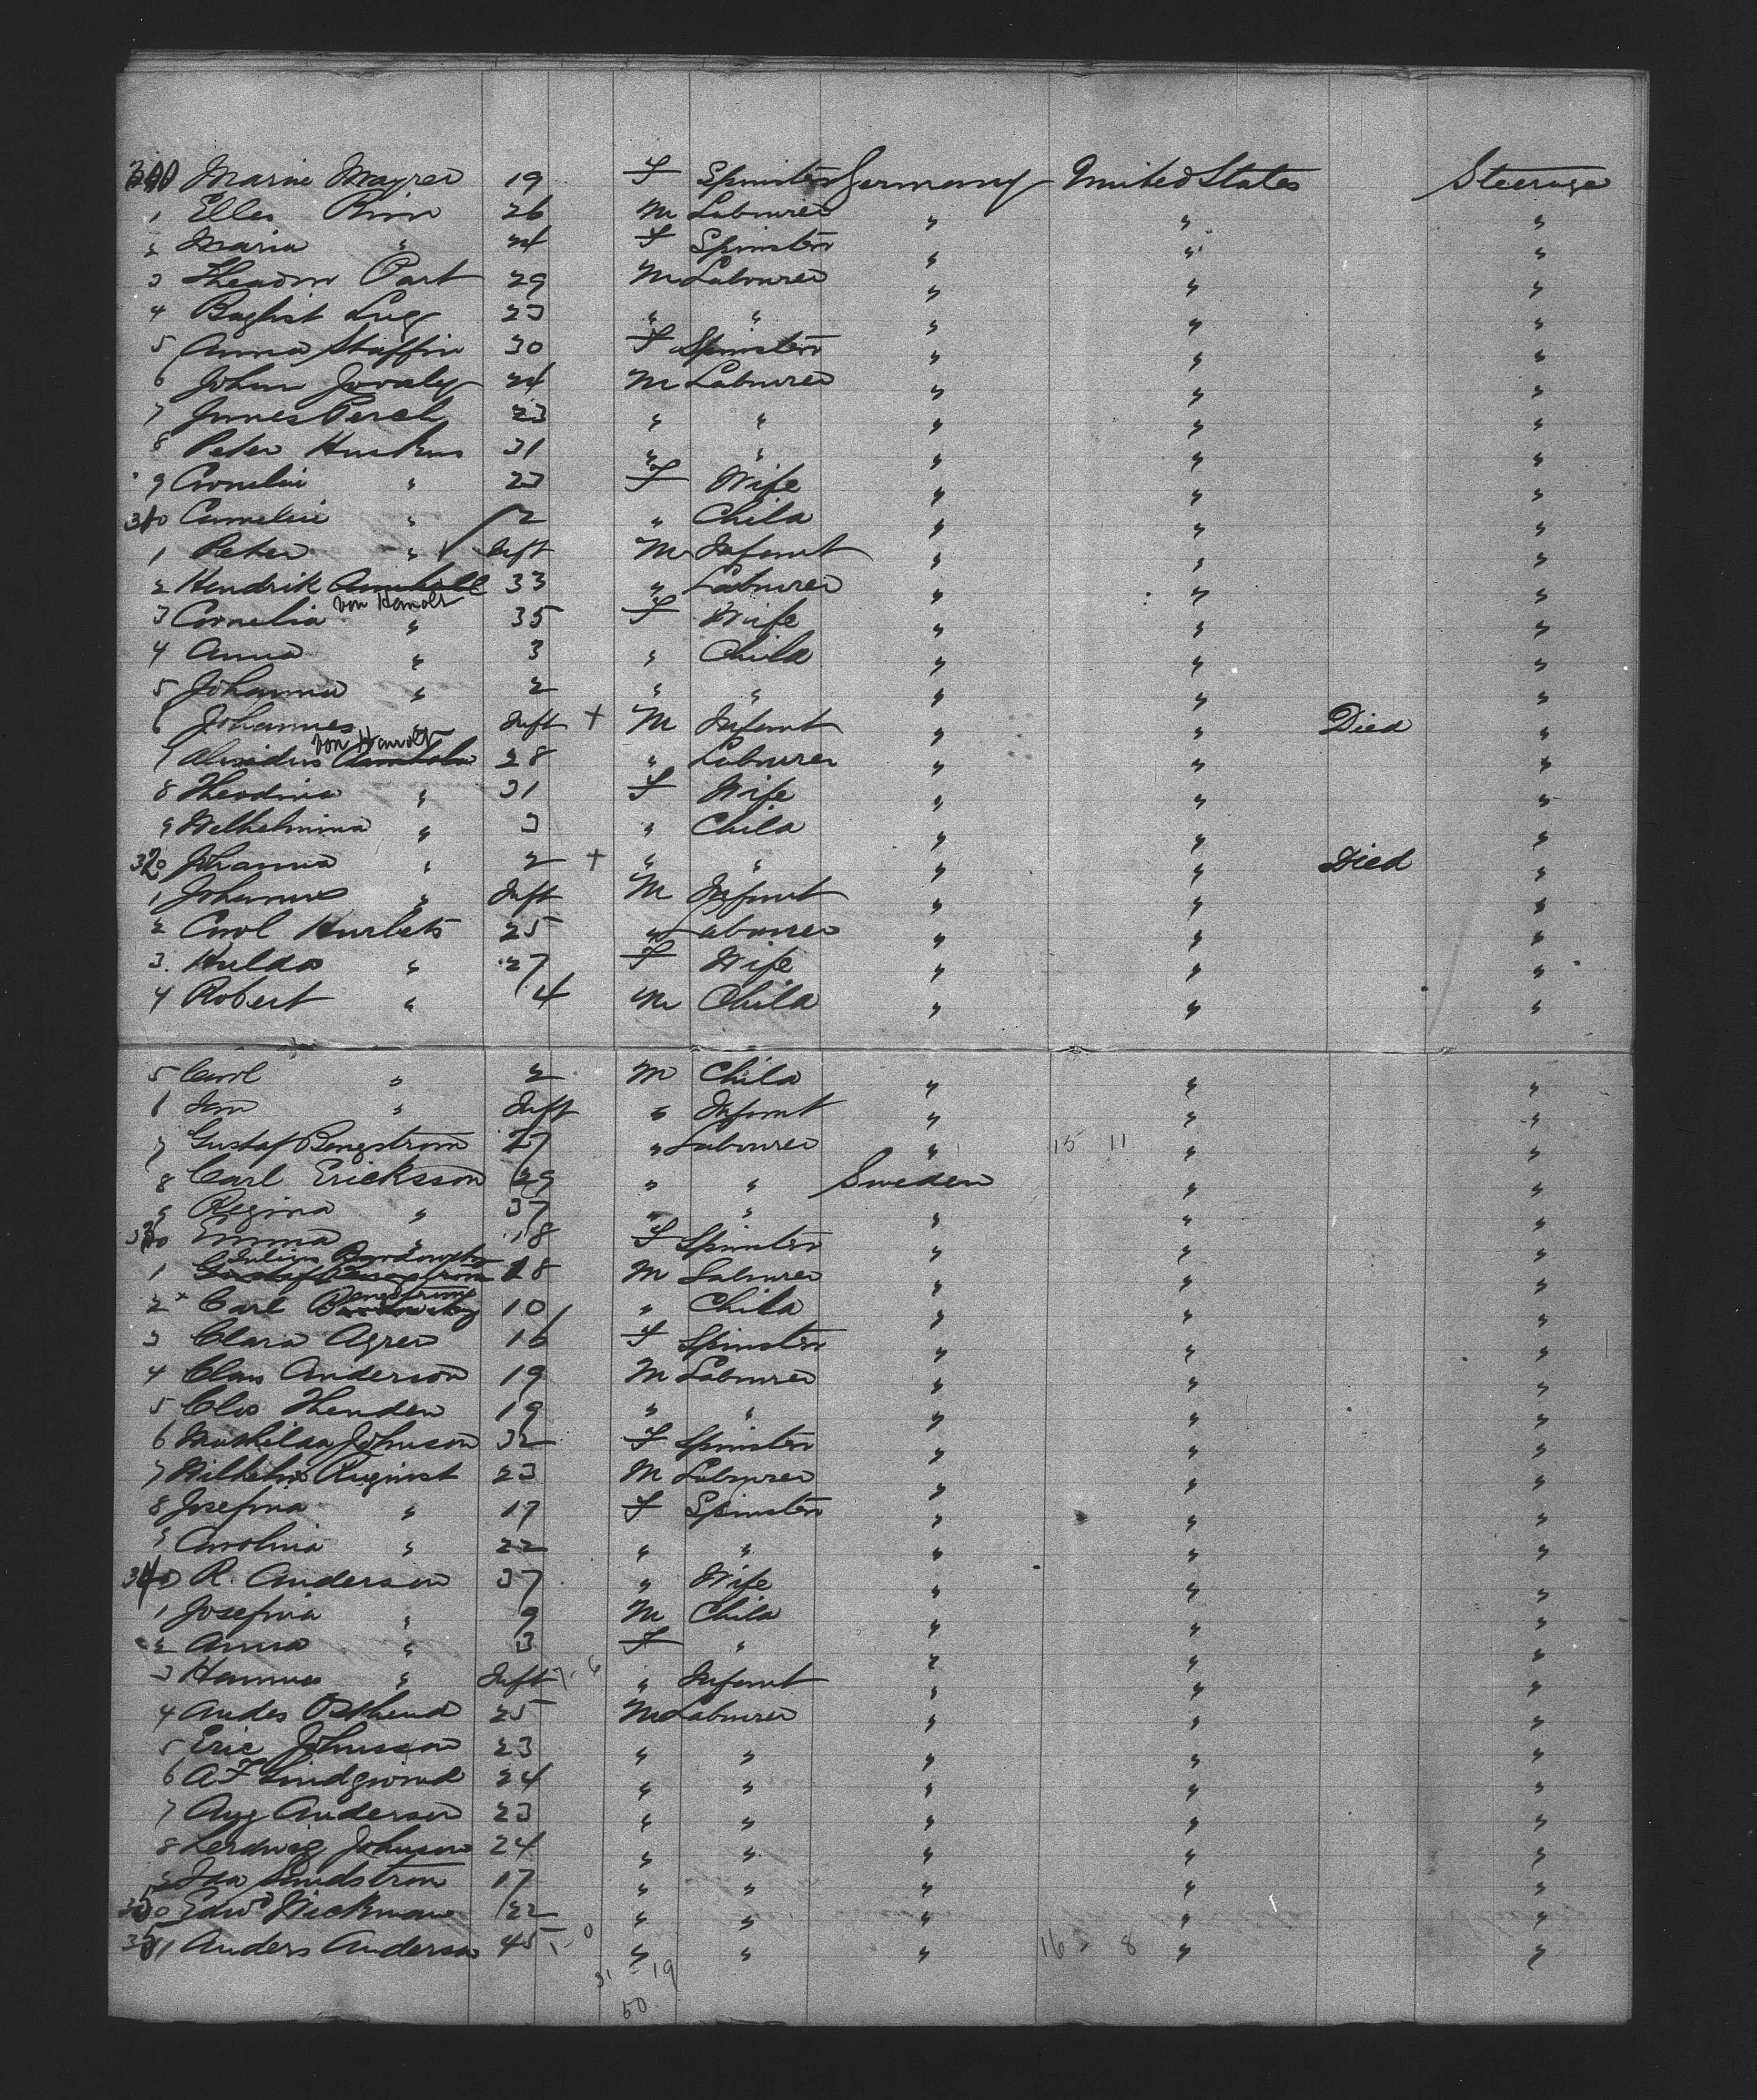 300 Marie Mayrer 19 F Spinster Germany United States Steerage
1 Elles Rinn 26 M Labourer " " "
2 Maria " 24 F Spinster " " "
3 Theador Part 29 M Labourer " " "
4 Baglist Lug 23 " " " " "
5 Anna Staffin 30 F Spinster " " "
6 Johan 24 M Labourer " " "
7 James Perch 23 " " " " "
8 Peter Huskus 31 " " " " "
9 Cornelie " 23 F Wife " " "
310 Cornelie " 2 " Child " " "
1 Peter " Inft M Infant " " "
2 Hendrik 33 " Labourer " " "
von Hemolt
3 Cornelia " 35 F Wife " " "
4 Anna " 3 " Child " " "
5 Johanna " 2 " " " " "
6 Johannes Inft + M Infant " " Died "
von Hemolt
7 28 " Labourer " " "
8 Theodina " 31 F Wife " " "
9 Welhelmina " 3 " Child " " "
320 Johanna " 2 + " " " " Died "
1 Johannes " Inft M Infant " " "
2 Carol Hurlets 25 " Labourer " " "
3 Hulda " 27 F Wife " " "
4 Robert " 4 M Child " " "
5 Carol " 2 M Child " " "
6 " Inft " Infant " " "
7 Gustaf Bengstrom 27 " Labourer " 15 11 " "
8 Carl Ericksson 29 " " Sweden " "
9 Regina " 37 " " " " "
330 Emma " 18 F Spinster " " "
Julius
1 18 M Labourer " " "
2 Carl 10 " Child " " "
3 Clara Agren 16 F Spinster " " "
4 Claus Anderson 19 M Labourer " " "
5 Clas Thenden 19 " " " " "
6 Mathilda Johnson 32 F Spinster " " "
7 Wilhelm Ruginst 23 M Labourer " " "
8 Josefina " 17 F Spinster " " "
9 Carolina " 22 " " " " "
340 R. Anderson 37 " Wife " " "
1 Josefina " 9 M Child " " "
2 Anna " 3 F " " " "
3 Hannes " Inft " Infant " " "
4 Andes Osthend 25 M Labourer " " "
5 Eric Johnsson 23 " " " " "
6 A F Lindgrind 24 " " " " "
7 Aug Anderson 23 " " " " "
8 Lerdweg Johnson 24 " " " " "
9 Ida Lindstrom 17 " " " " "
350 Edwd Wickman 22 " " " " "
351 Anders Anderson 45 " " " 16 8 " "
31 - 19
50